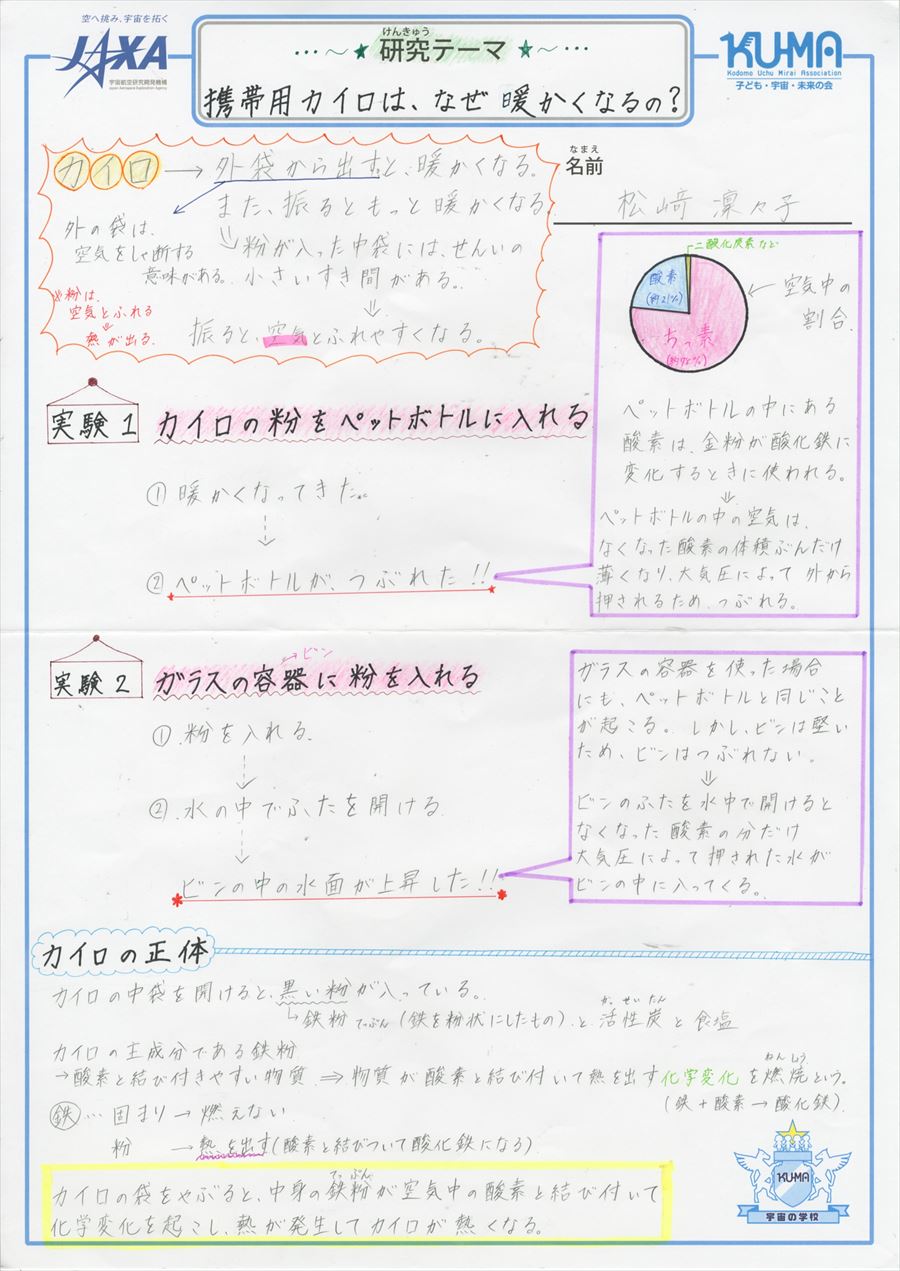 空へ挑み、宇宙を拓く
JAXA
宇宙航空研究開発機構
Japan Aerospace Exploration Agency
けんきゅう
…～★研究テーマ★～…
携帯用カイロは、なぜ暖かくなるの？
KU-MA
Kodomo Uchu Mirai Association
子ども・宇宙・未来の会
なまえ
名前
松﨑 凜々子
カイロ→外袋から出すと、暖かくなる。
また、振るともっと暖かくなる。
⇓粉が入った中袋には、せんいの
小さいすき間がある。
⇓
振ると、空気とふれやすくなる。
外の袋は、
空気をしゃ断する
意味がある。
※粉は、
空気とふれる
⇓
熱が出る。
二酸化炭素など
酸素
(約21%)
ちっ素
(約78%)
←空気中の
割合。
ペットボトルの中にある
酸素は、金粉が酸化鉄に
変化するときに使われる。
⇓
ペットボトルの中の空気は、
なくなった酸素の体積ぶんだけ
薄くなり、大気圧によって外から
押されるため、つぶれる。
実験1
カイロの粉をペットボトルに入れる
①暖かくなってきた。
↓
②ペットボトルが、つぶれた!!
実験2
→ビン
ガラスの容器に粉を入れる
①.粉を入れる.
↓
②.水の中でふたを開ける
↓
ビンの中の水面が上昇した!!
ガラスの容器を使った場合
にも、ペットボトルと同じこと
が起こる。しかし、ビンは堅い
ため、ビンはつぶれない。
⇓
ビンのふたを水中で開けると
なくなった酸素の分だけ
大気圧によって押された水が
ビンの中に入ってくる。
カイロの正体
カイロの中袋を開けると、黒い粉が入っている。
かっせいたん
↳鉄粉 てっぷん (鉄を粉状にしたもの)．と活性炭と食塩
カイロの主成分である鉄粉
ねんしょう
→酸素と結び付きやすい物質 ⇒ 物質が酸素と結び付いて熱を出す化学変化を燃焼という。
(鉄+酸素→酸化鉄).
鉄…固まり→燃えない
粉 →熱を出す(酸素と結びついて酸化鉄になる)
てっぷん
カイロの袋をやぶると、中身の鉄粉が空気中の酸素と結び付いて
化学変化を起こし、熱が発生してカイロが熱くなる。
KU-MA
宇宙の学校